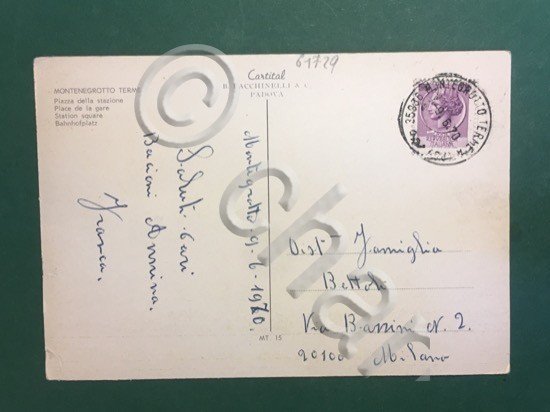 MONTENEGROTTO TERME
Piazza della stazione
Place de la gare
Station square
Bahnhofplatz
61729
Cartital
B. FACCHINELLI & C.
PADOVA
35036 MONTEGROTTO TERME
9 6 70
Montegrotto 9-6-1970.
Saluti cari
Bacioni Annina.
Franca.
Dist Famiglia
Bettoli
Via Bazzini N. 2.
20100 Milano
MT 15
© char